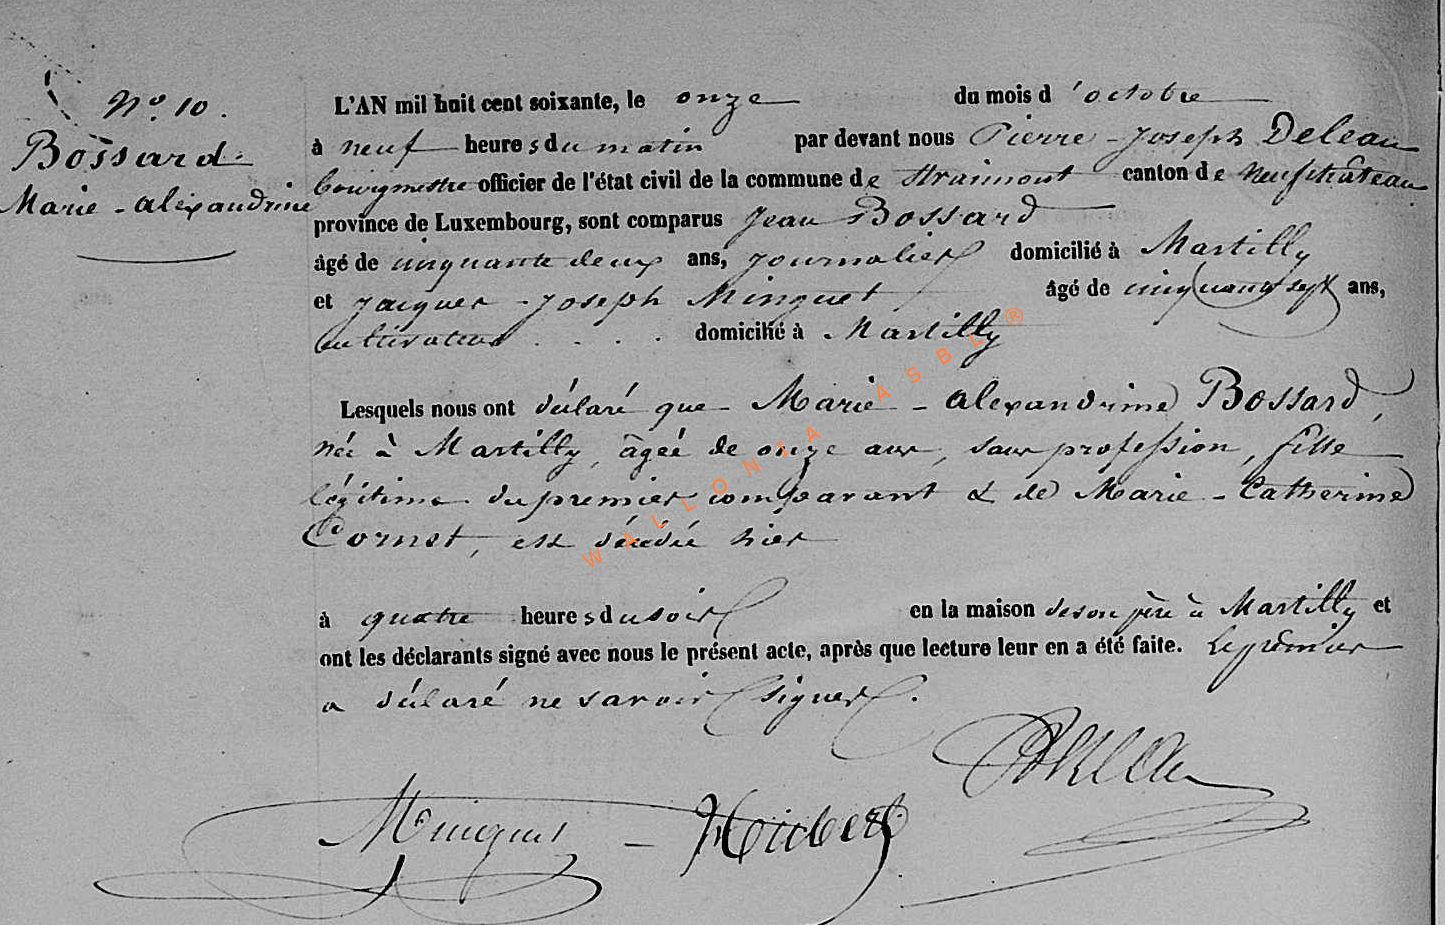 N.° 10.
Bossard
Marie - alexandrine
L'AN mil huit cent soixante, le onze du mois d'octobre
à neuf heures du matin par devant nous Pierre - Joseph Deleau
bourgmestre officier de l'état civil de la commune de Straimont canton de Neufchâteau
province de Luxembourg, sont comparus Jean Bossard
âgé de cinquante deux ans, journalier domicilié à Martilly
et Jacques - Joseph Minguet âgé de cinquante sept ans,
cultivateur . . . . domicilié à Martilly
Lesquels nous ont déclaré que Marie - alexandrine Bossard,
née à Martilly, âgée de onze ans, sans profession, fille
légitime du premier comparant & de Marie - Catherine
Cornet, est décédée hier
à quatre heures du soir en la maison de son père à Martilly et
ont les déclarants signé avec nous le présent acte, après que lecture leur en a été faite. Le premier
a déclaré ne savoir signer.
Minguet - Houbert
WALLONIA ASBL ®